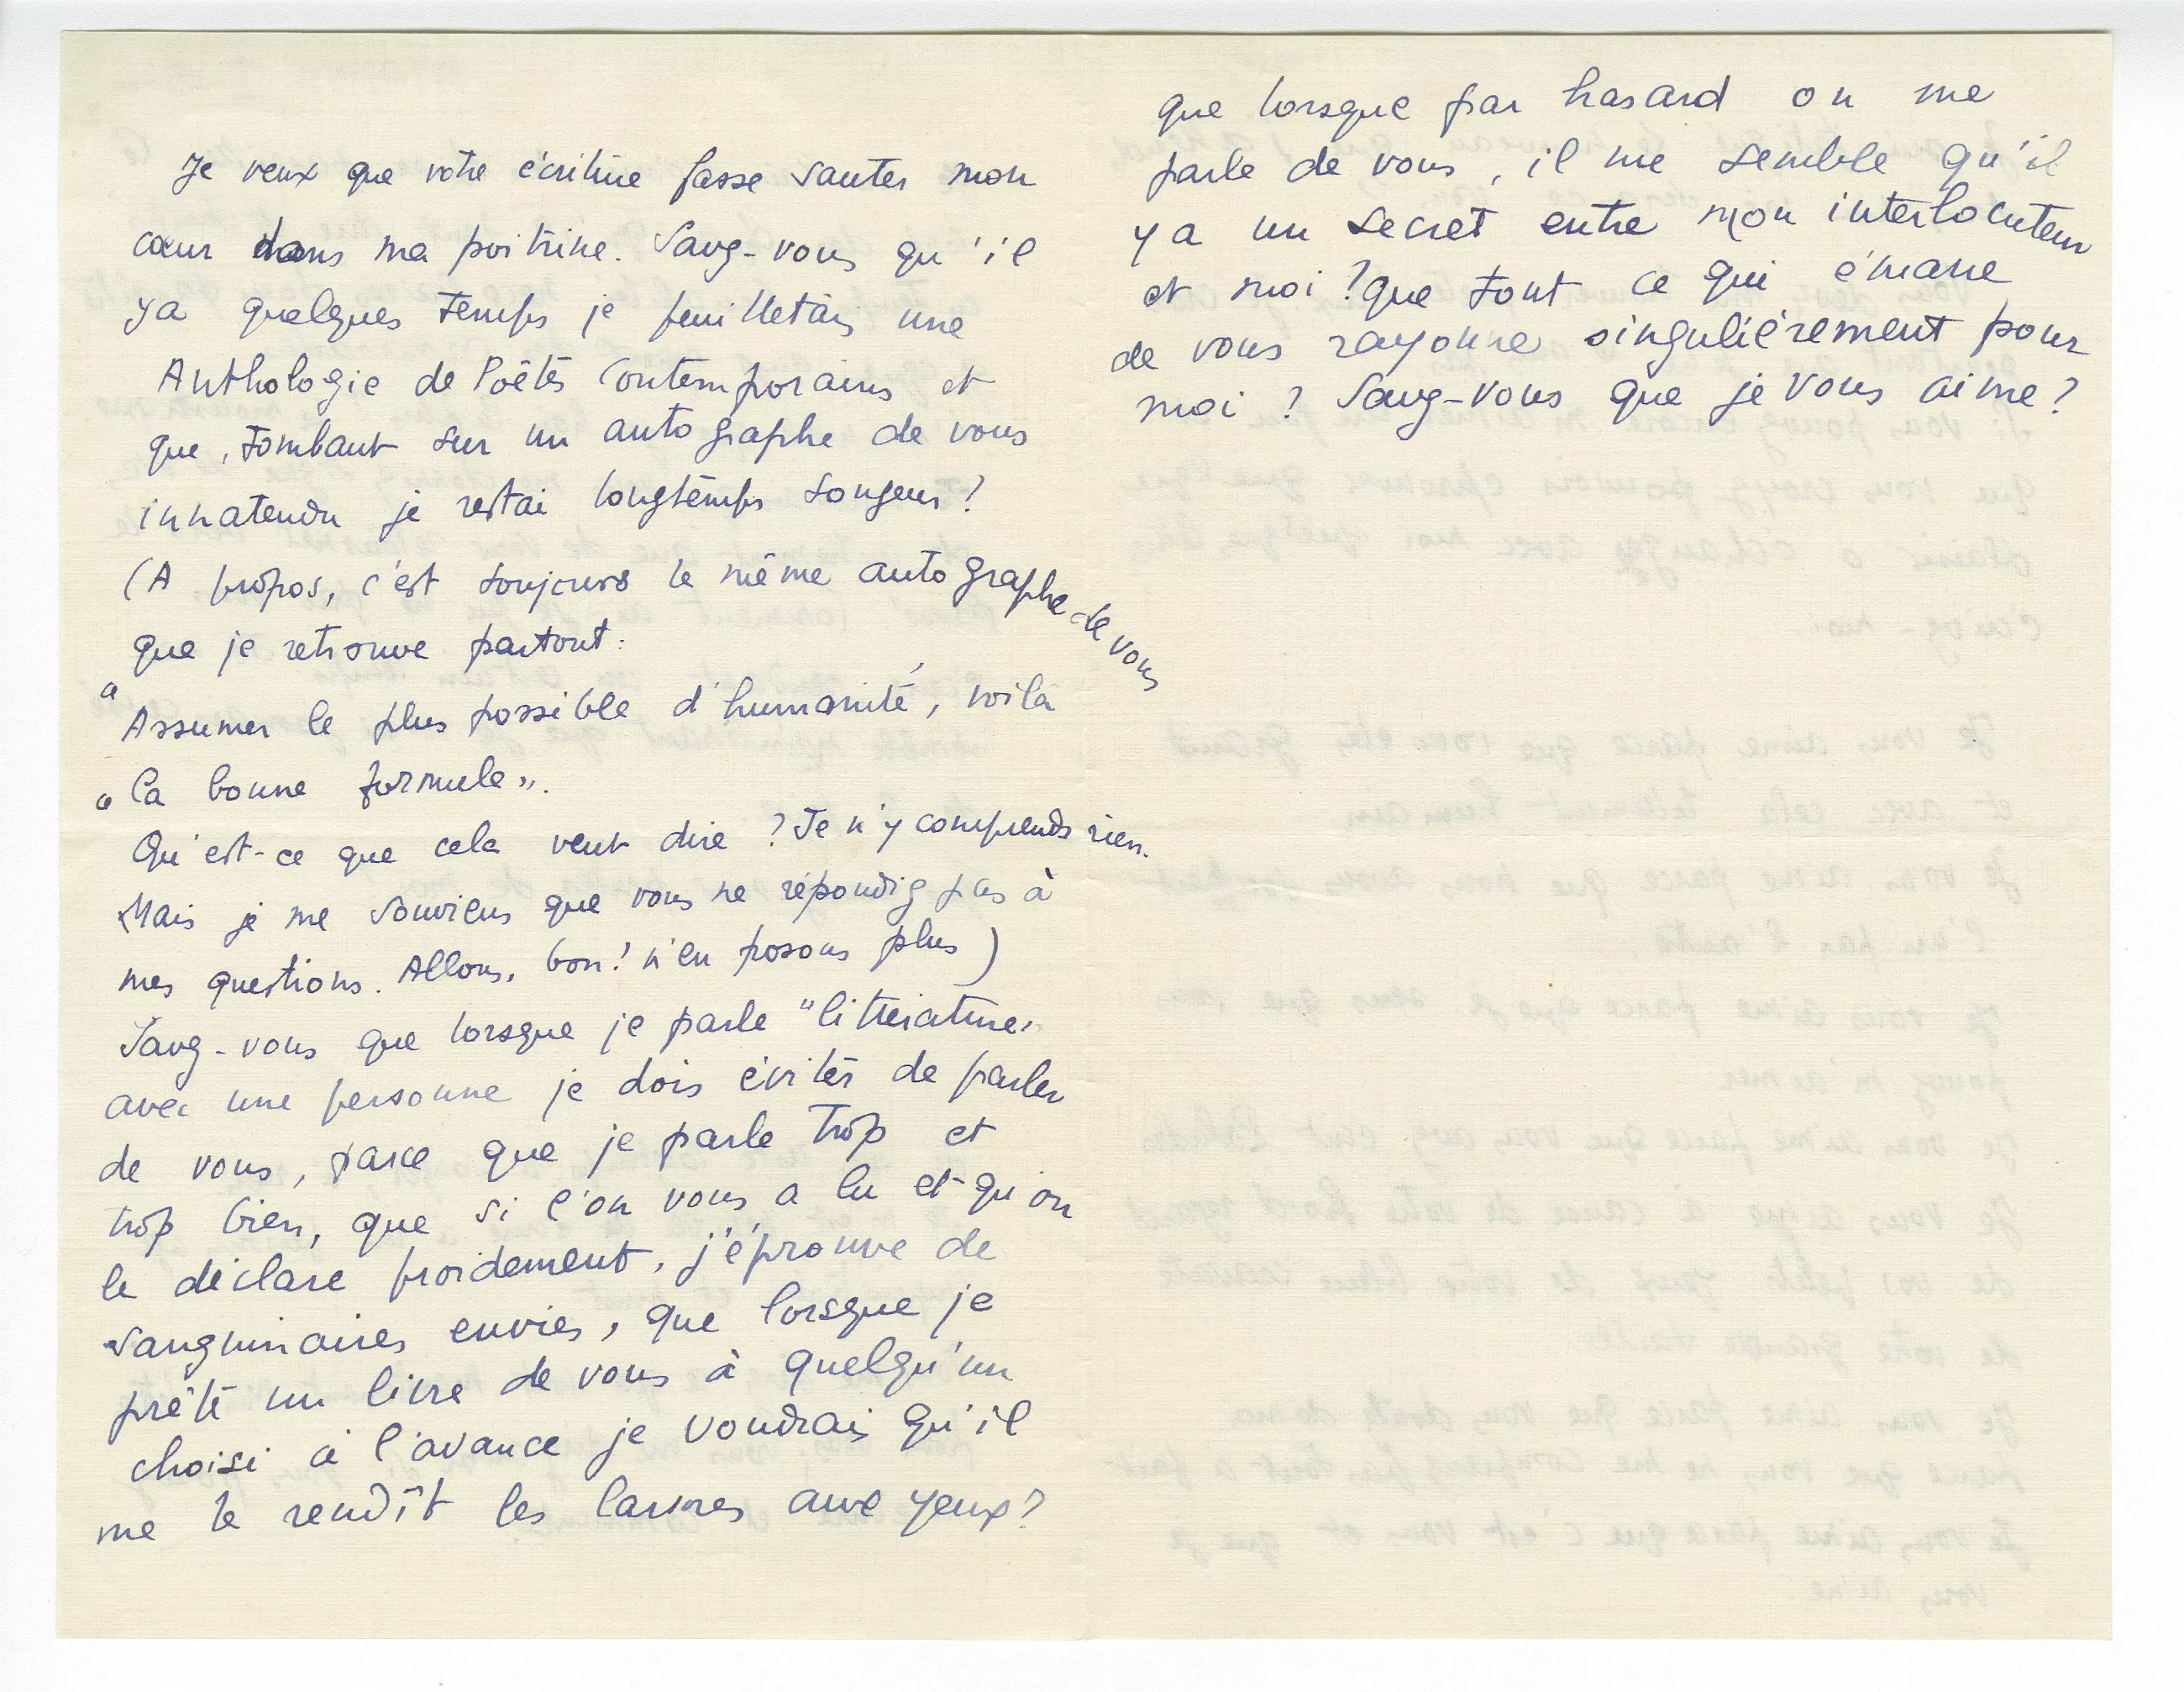 Je veux que votre écriture fasse sauter mon
cœur dans ma poitrine. Savez-vous qu'il
y a quelques temps je feuilletais une
Anthologie de Poètes Contemporains et
que, tombant sur un autographe de vous
innatendu je restai longtemps songeur ?
(A propos, c'est toujours le même autographe de vous
que je retrouve partout :
"Assumer le plus possible d'humanité, voilà
"la bonne formule".
Qu'est-ce que cela veut dire ? Je n'y comprends rien.
Mais je me souviens que vous ne répondez pas à
mes questions. Allons, bon ! n'en posons plus)
Savez-vous que lorsque je parle "littérature"
avec une personne je dois éviter de parler
de vous, parce que je parle trop et
trop bien, que si l'on vous a lu et qu'on
le déclare froidement, j'éprouve de
sanguinaires envies, que lorsque je
prête un livre de vous à quelqu'un
choisi à l'avance je voudrais qu'il
me le rendît les larmes aux yeux ?
que lorsque par hasard on me
parle de vous, il me semble qu'il
y a un secret entre mon interlocuteur
et moi ? que tout ce qui émane
de vous rayonne singulièrement pour
moi ? Savez-vous que je vous aime ?